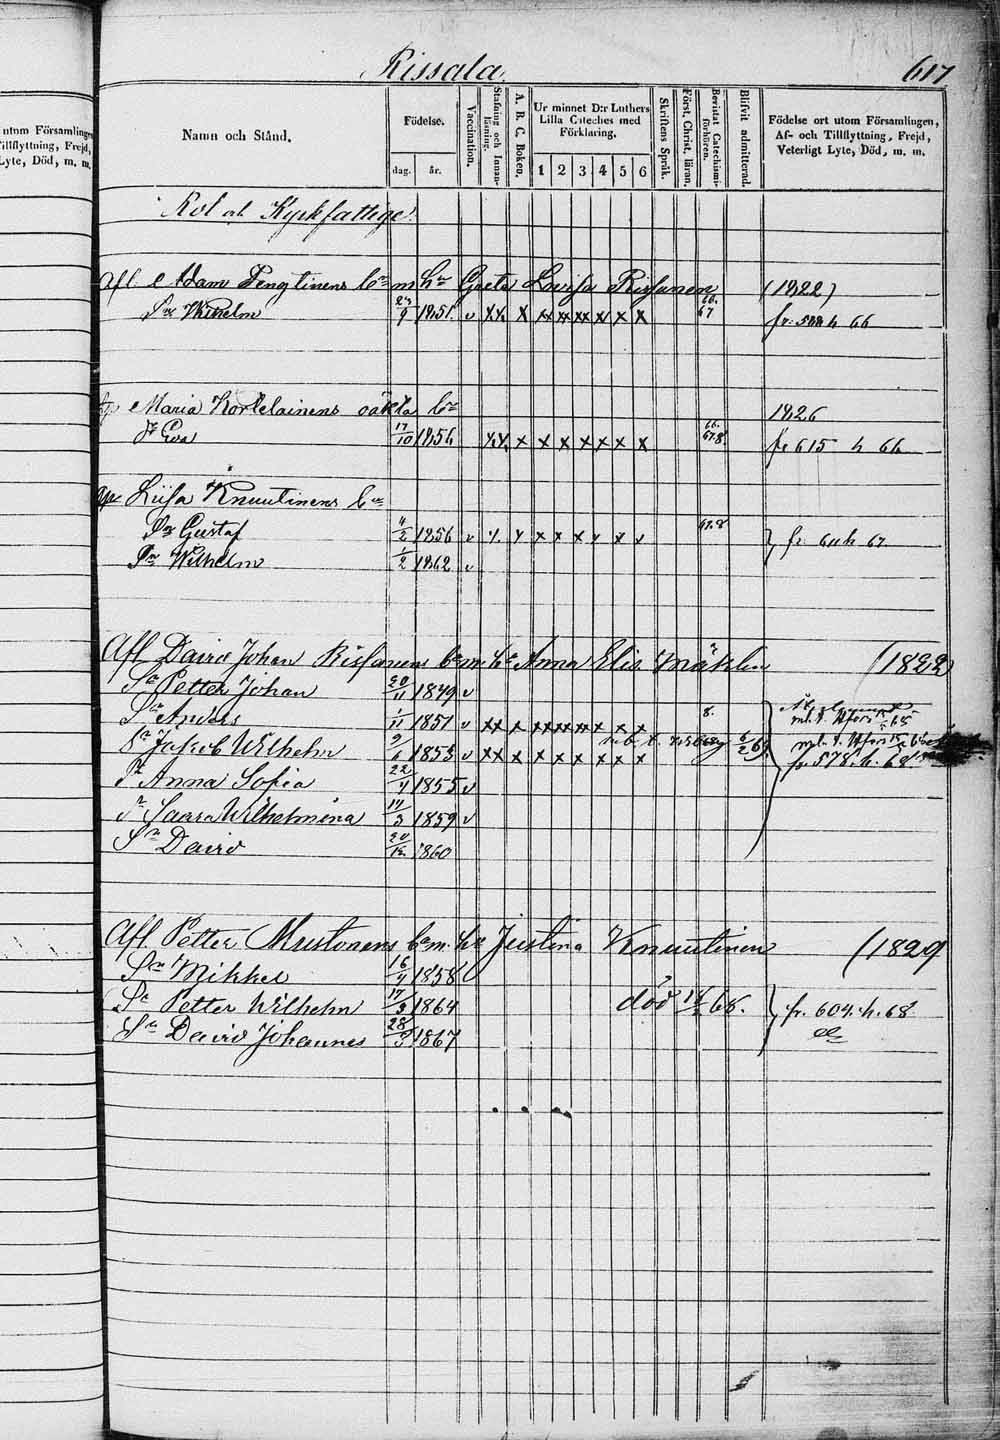 Rissala.
617
utom Församlingen
Tillflyttning, Frejd,
Lyte, Död, m. m.
Namn och Stånd.
Födelse.
dag. år.
Vaccination.
Stafning och Innanläsning.
A. B. C. Boken.
Ur minnet D:r Luthers
Lilla Cateches med
Förklaring.
1 2 3 4 5 6
Skriftens Språk.
Först. Christ. läran.
Bevistat Catechismiförhören.
Blifvit admitterad.
Födelse ort utom Församlingen,
Af- och Tillflyttning, Frejd,
Veterligt Lyte, Död, m. m.
Rot och Kyrkfattige.
Afl. Adam Pengtinens bn m hu Greta Lovisa Rissanen (1822)
Sn Wilhelm 9 1851. v xx x xx xx xx xx x x 66. 67 h 66
Maria Kortelainens oäkta bn 1826
Dr Eva 17/10 1856 xx x x x x x x x 66. 67.8. fr 615 h 66
Liisa Knuutinens bn
Sn Gustaf 4/2 1856 v x x x x x x x v 67.8 } fr. 611 h 67
Sn Wilhelm 1/2 1862 v
Afl David Johan Rissanens bn m. hu Anna Elis Mähkin (1822)
Sn Petter Johan 20/11 1849 v
Sn Anders 1/11 1851 v xx x xx xx xx x x x 8.
Sn Jakob Wilhelm 9/6 1853 v xx x x x x x x x fr. 578. h. 68
Dr Anna Sofia 22/4 1855 v
Dr Saara Wilhelmina 17/3 1859 v
Sn David 30/12 1860
Afl. Petter Mustonens bn m. hu Justina Knuutinen (1829
Sn Mikkel 16/4 1858
Sn Petter Wilhelm 17/3 1864 död 68. } fr. 604. h. 68
Sn David Johannes 28/3 1867